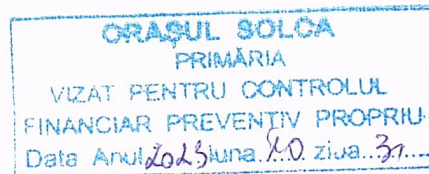 ORAŞUL SOLCA
PRIMĂRIA
VIZAT PENTRU CONTROLUL
FINANCIAR PREVENTIV PROPRIU
Data Anul 2023 luna 10 ziua 31